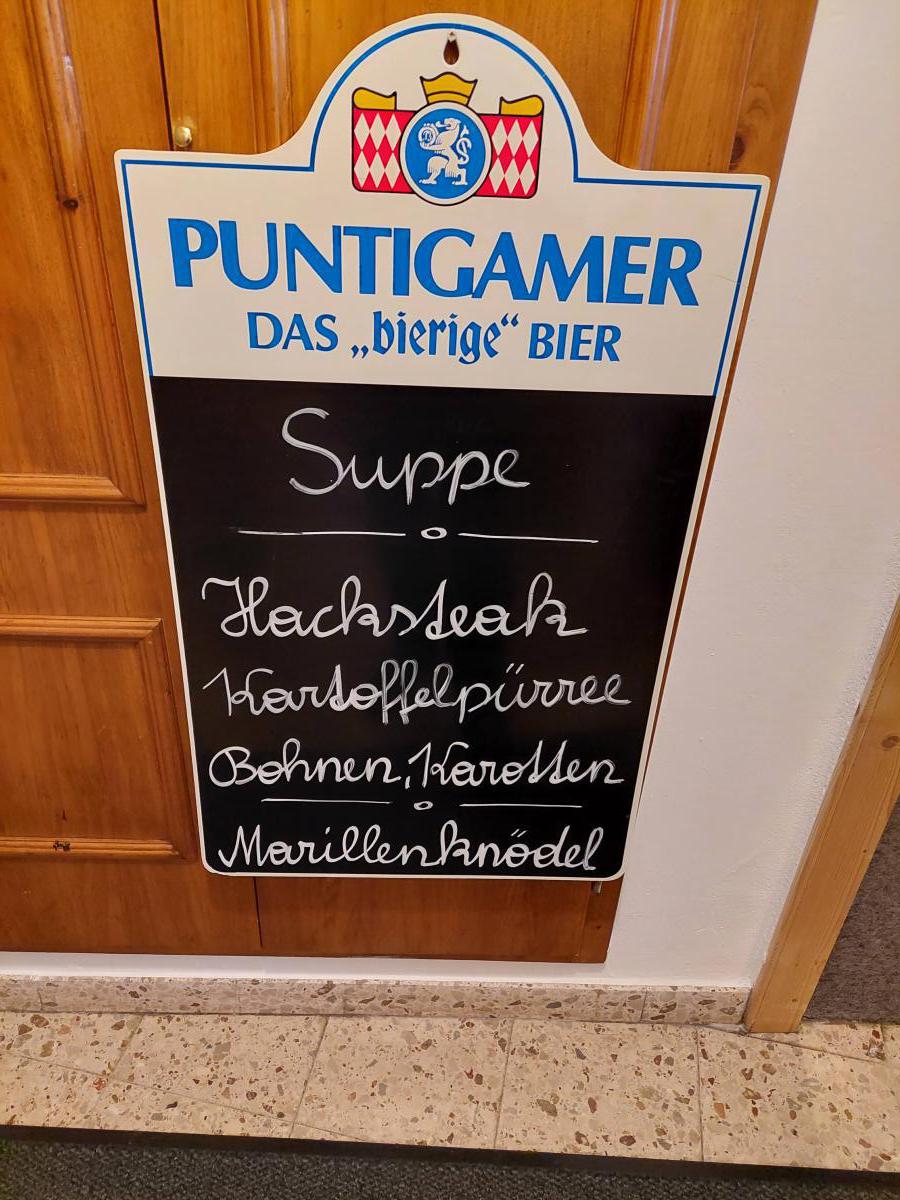 PUNTIGAMER
DAS „bierige“ BIER
Suppe
Hacksteak
Kartoffelpürree
Bohnen, Karotten
Marillenknödel